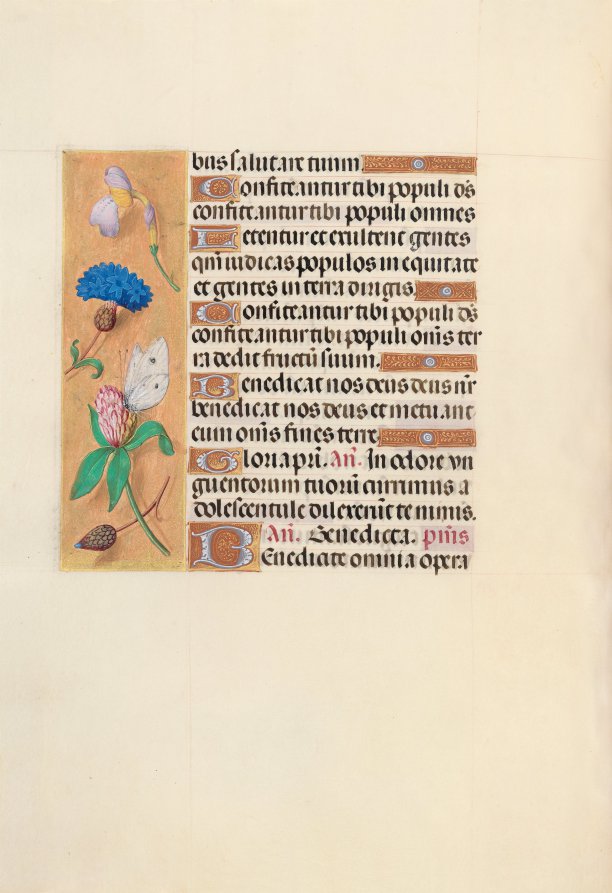 bus salutare tuum
Confiteantur tibi populi ds̄
confiteantur tibi populi omnes
Letentur et exultent gentes
qm̄ iudicas populos in equitate
et gentes in terra dirigis.
Confiteantur tibi populi ds̄
confiteantur tibi populi om̄s ter
ra dedit fructū suum.
Benedicat nos deus deus nr̄
benedicat nos deus et metuant
eum om̄s fines terre
Gloria pr̄i. Añ. In odore vn
guentorum tuorū currimus a
dolescentule dilexerūt te nimis.
Añ. Benedicta. pm̄s
Benedicite omnia opera